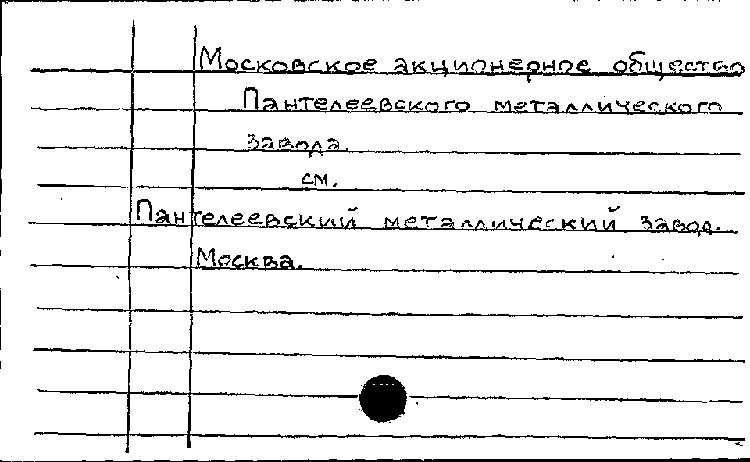 Московское акционерное общество
Пантелеевского металлического
завода.
см.
Пантелеевский металлический завод.
Москва.